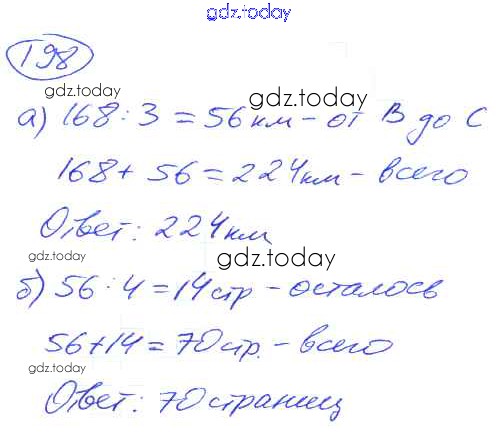 gdz.today
198
gdz.today
gdz.today
а) 168 : 3 = 56 км – от В до С
168 + 56 = 224 км – всего
Ответ: 224 км
gdz.today
gdz.today
б) 56 : 4 = 14 стр – осталось
56+14 = 70 стр. – всего
gdz.today
Ответ: 70 страниц